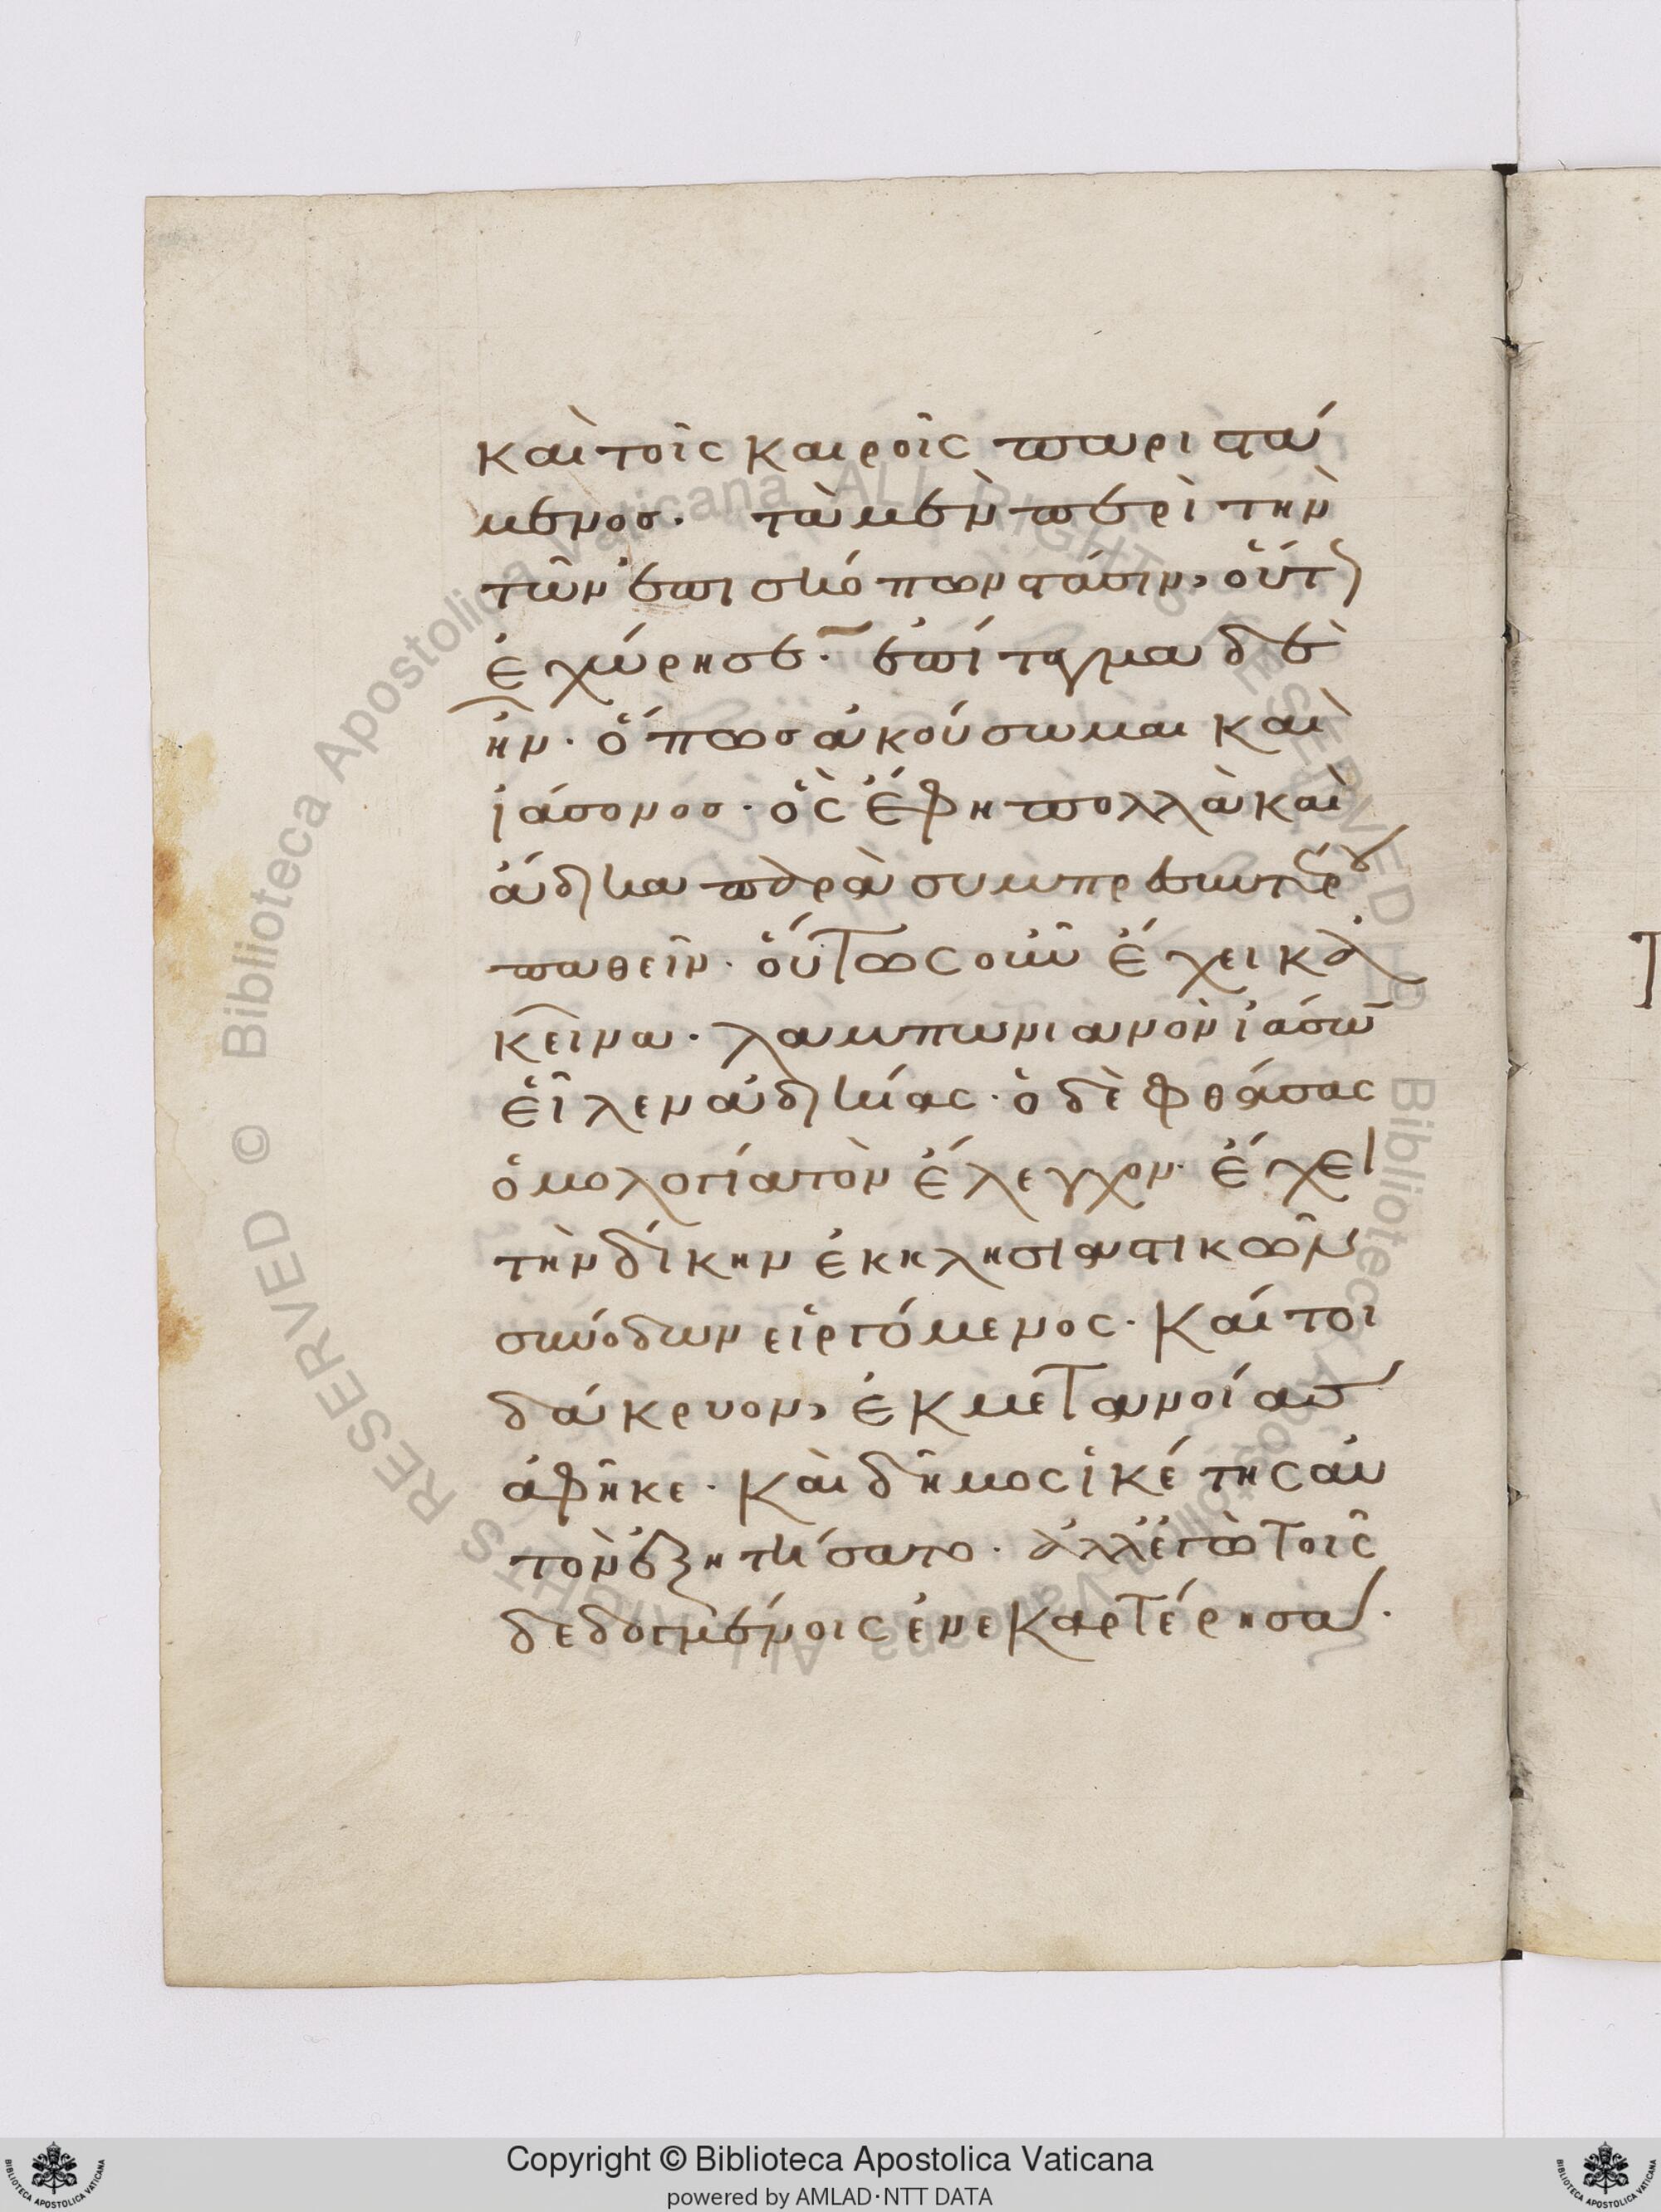 καὶ τοῖς καιροῖς παριστά
μενος. τὰ μὲν περὶ τὴν
τῶν ἐπισκόπων στάσιν, οὕτ
ἐχώρησε. ἐπίταγμα δὲ
ἦν. ὅπως ἀκούσωμαι καὶ
ἰάσονος. ὃς ἔφη πολλὰ καὶ
ἄδικα παρὰ συμπρεσβυτέρ
παθεῖν. οὕτως οὖν ἔχει κἀ
κεῖνα. λαμπωνιανὸν ἰάσων
εἷλεν ἀδικίας. ὁ δὲ φθάσας
ὁμολογία τὸν ἔλεγχον. ἔχει
τὴν δίκην ἐκκλησιαστικῶν
συνόδων εἰργόμενος. καίτοι
δάκρυον, ἐκ μετανοίας
ἀφῆκε. καὶ δῆμος ἱκέτης αὐ
τὸν ἐξητήσατο. ἀλλ' ἐγὼ τοῖς
δεδογμένοις ἐνεκαρτέρησα.
Copyright © Biblioteca Apostolica Vaticana
powered by AMLAD·NTT DATA
© Biblioteca Apostolica Vaticana ALL RIGHTS RESERVED
© Biblioteca Apostolica Vaticana ALL RIGHTS RESERVED